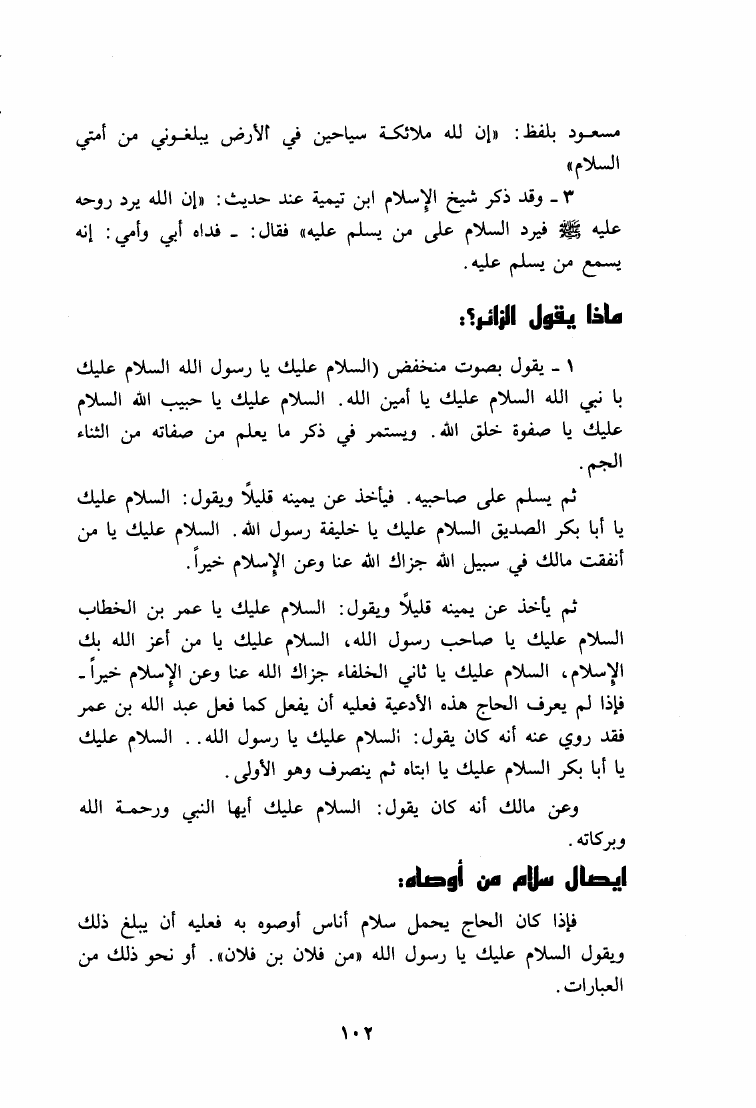 مسعود بلفظ: «إن لله ملائكة سياحين في الأرض يبلغوني من أمتي
السلام»
٣ - وقد ذكر شيخ الإسلام ابن تيمية عند حديث: «إن الله يرد روحه
عليه ﷺ فيرد السلام على من يسلم عليه» فقال: - فداه أبي وأمي: إنه
يسمع من يسلم عليه.
ماذا يقول الزائر؟:
١ - يقول بصوت منخفض (السلام عليك يا رسول الله السلام عليك
با نبي الله السلام عليك يا أمين الله. السلام عليك يا حبيب الله السلام
عليك يا صفوة خلق الله. ويستمر في ذكر ما يعلم من صفاته من الثناء
الجم.
ثم يسلم على صاحبيه. فيأخذ عن يمينه قليلاً ويقول: السلام عليك
يا أبا بكر الصديق السلام عليك يا خليفة رسول الله. السلام عليك يا من
أنفقت مالك في سبيل الله جزاك الله عنا وعن الإسلام خيراً.
ثم يأخذ عن يمينه قليلاً ويقول: السلام عليك يا عمر بن الخطاب
السلام عليك يا صاحب رسول الله، السلام عليك يا من أعز الله بك
الإسلام، السلام عليك يا ثاني الخلفاء جزاك الله عنا وعن الإسلام خيراً -
فإذا لم يعرف الحاج هذه الأدعية فعليه أن يفعل كما فعل عبد الله بن عمر
فقد روي عنه أنه كان يقول: السلام عليك يا رسول الله.. السلام عليك
يا أبا بكر السلام عليك يا ابتاه ثم ينصرف وهو الأولى.
وعن مالك أنه كان يقول: السلام عليك أيها النبي ورحمة الله
وبركاته.
ايصال سلام من أوصاه:
فإذا كان الحاج يحمل سلام أناس أوصوه به فعليه أن يبلغ ذلك
ويقول السلام عليك يا رسول الله «من فلان بن فلان». أو نحو ذلك من
العبارات.
١٠٢